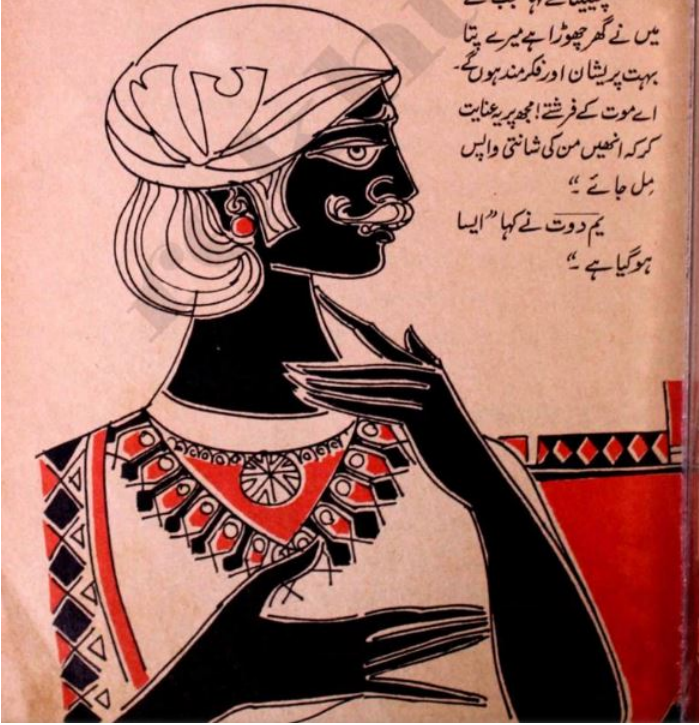 میں نے گھر چھوڑا ہے میرے پتا
بہت پریشان اور فکرمند ہوں گے۔
اے موت کے فرشتے! مجھ پر یہ عنایت
کر کہ انھیں من کی شانتی واپس
مِل جائے۔“
یم دوت نے کہا ”ایسا
ہوگیا ہے۔“